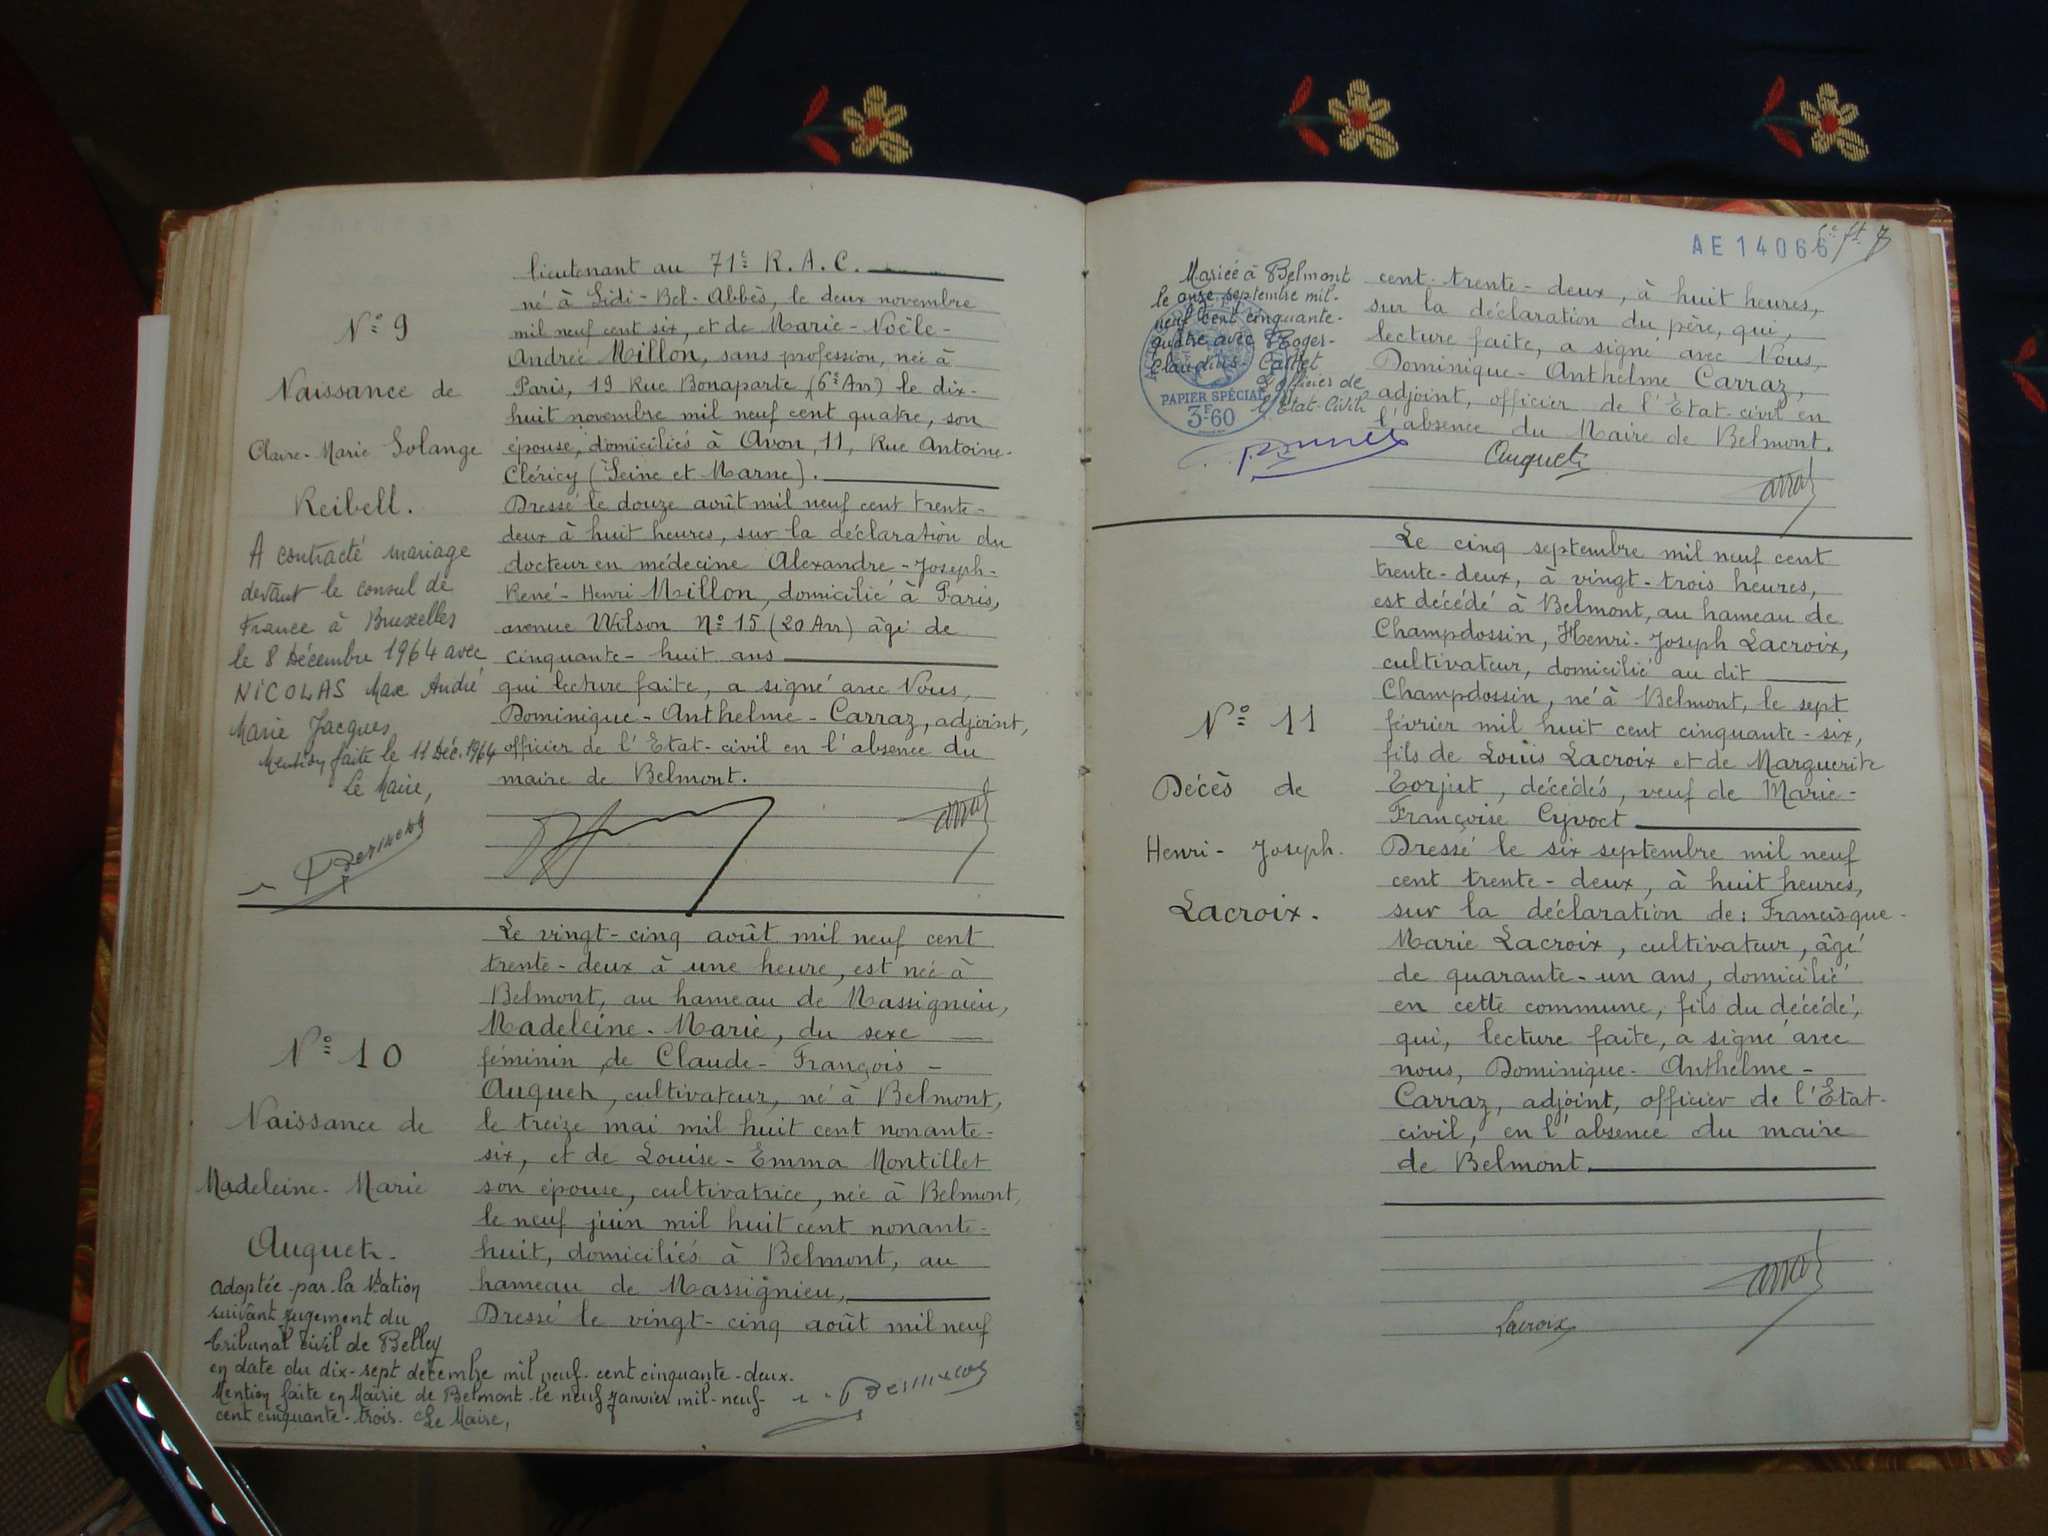 lieutenant au 71e R.A.C.
né à Sidi-Bel-Abbès, le deux novembre
mil neuf cent six, et de Marie-Noële-
Andrée Millon, sans profession, née à
Paris, 19 Rue Bonaparte (6e Arr) le dix-
huit novembre mil neuf cent quatre, son
épouse, domiciliés à Avon, 11, Rue Antoine-
Cléricy (Seine et Marne).
Dressé le douze août mil neuf cent trente-
deux à huit heures, sur la déclaration du
docteur en médecine Alexandre-Joseph-
René-Henri Millon, domicilié à Paris,
avenue Wilson No 15 (20 Arr) âgé de
cinquante-huit ans
qui lecture faite, a signé avec Nous,
Dominique-Anthelme-Carraz, adjoint,
officier de l'Etat-civil en l'absence du
maire de Belmont.
No 9
Naissance de
Claire-Marie Solange
Reibell.
A contracté mariage
devant le consul de
France à Bruxelles
le 8 Décembre 1964 avec
NICOLAS Max André
Marie Jacques
Mention faite le 11 Déc. 1964
Le Maire,
Le vingt-cinq août mil neuf cent
trente-deux à une heure, est née à
Belmont, au hameau de Massignieu,
Madeleine-Marie, du sexe
féminin, de Claude-François-
Auguet, cultivateur, né à Belmont,
le treize mai mil huit cent nonante-
six, et de Louise-Emma Montillet
son épouse, cultivatrice, née à Belmont,
le neuf juin mil huit cent nonante-
huit, domiciliés à Belmont, au
hameau de Massignieu,
Dressé le vingt-cinq août mil neuf
No 10
Naissance de
Madeleine-Marie
Auguet.
Adoptée par la Nation
suivant jugement du
tribunal civil de Belley
en date du dix-sept décembre mil neuf-cent cinquante-deux.
Mention faite en Mairie de Belmont le neuf Janvier mil-neuf-
cent cinquante-trois. Le Maire,
AE 14066
Mariée à Belmont
le onze septembre mil-
neuf cent cinquante-
quatre avec Roger-
Claudius-
L'officier de
l'Etat-Civil
PAPIER SPÉCIAL
3F60
cent-trente-deux, à huit heures,
sur la déclaration du père, qui,
lecture faite, a signé avec Nous,
Dominique-Anthelme Carraz,
adjoint, officier de l'Etat-civil en
l'absence du Maire de Belmont.
Auguet
Le cinq septembre mil neuf cent
trente-deux, à vingt-trois heures,
est décédé à Belmont, au hameau de
Champdossin, Henri-Joseph Lacroix,
cultivateur, domicilié au dit
Champdossin, né à Belmont, le sept
février mil huit cent cinquante-six,
fils de Louis Lacroix et de Marguerite
Torjut, décédés, veuf de Marie-
Françoise Cyvoct
Dressé le six septembre mil neuf
cent trente-deux, à huit heures,
sur la déclaration de: Francisque-
Marie Lacroix, cultivateur, âgé
de quarante-un ans, domicilié
en cette commune, fils du décédé,
qui, lecture faite, a signé avec
nous, Dominique-Anthelme-
Carraz, adjoint, officier de l'Etat-
civil, en l'absence du maire
de Belmont
No 11
Décès de
Henri-Joseph
Lacroix.
Lacroix